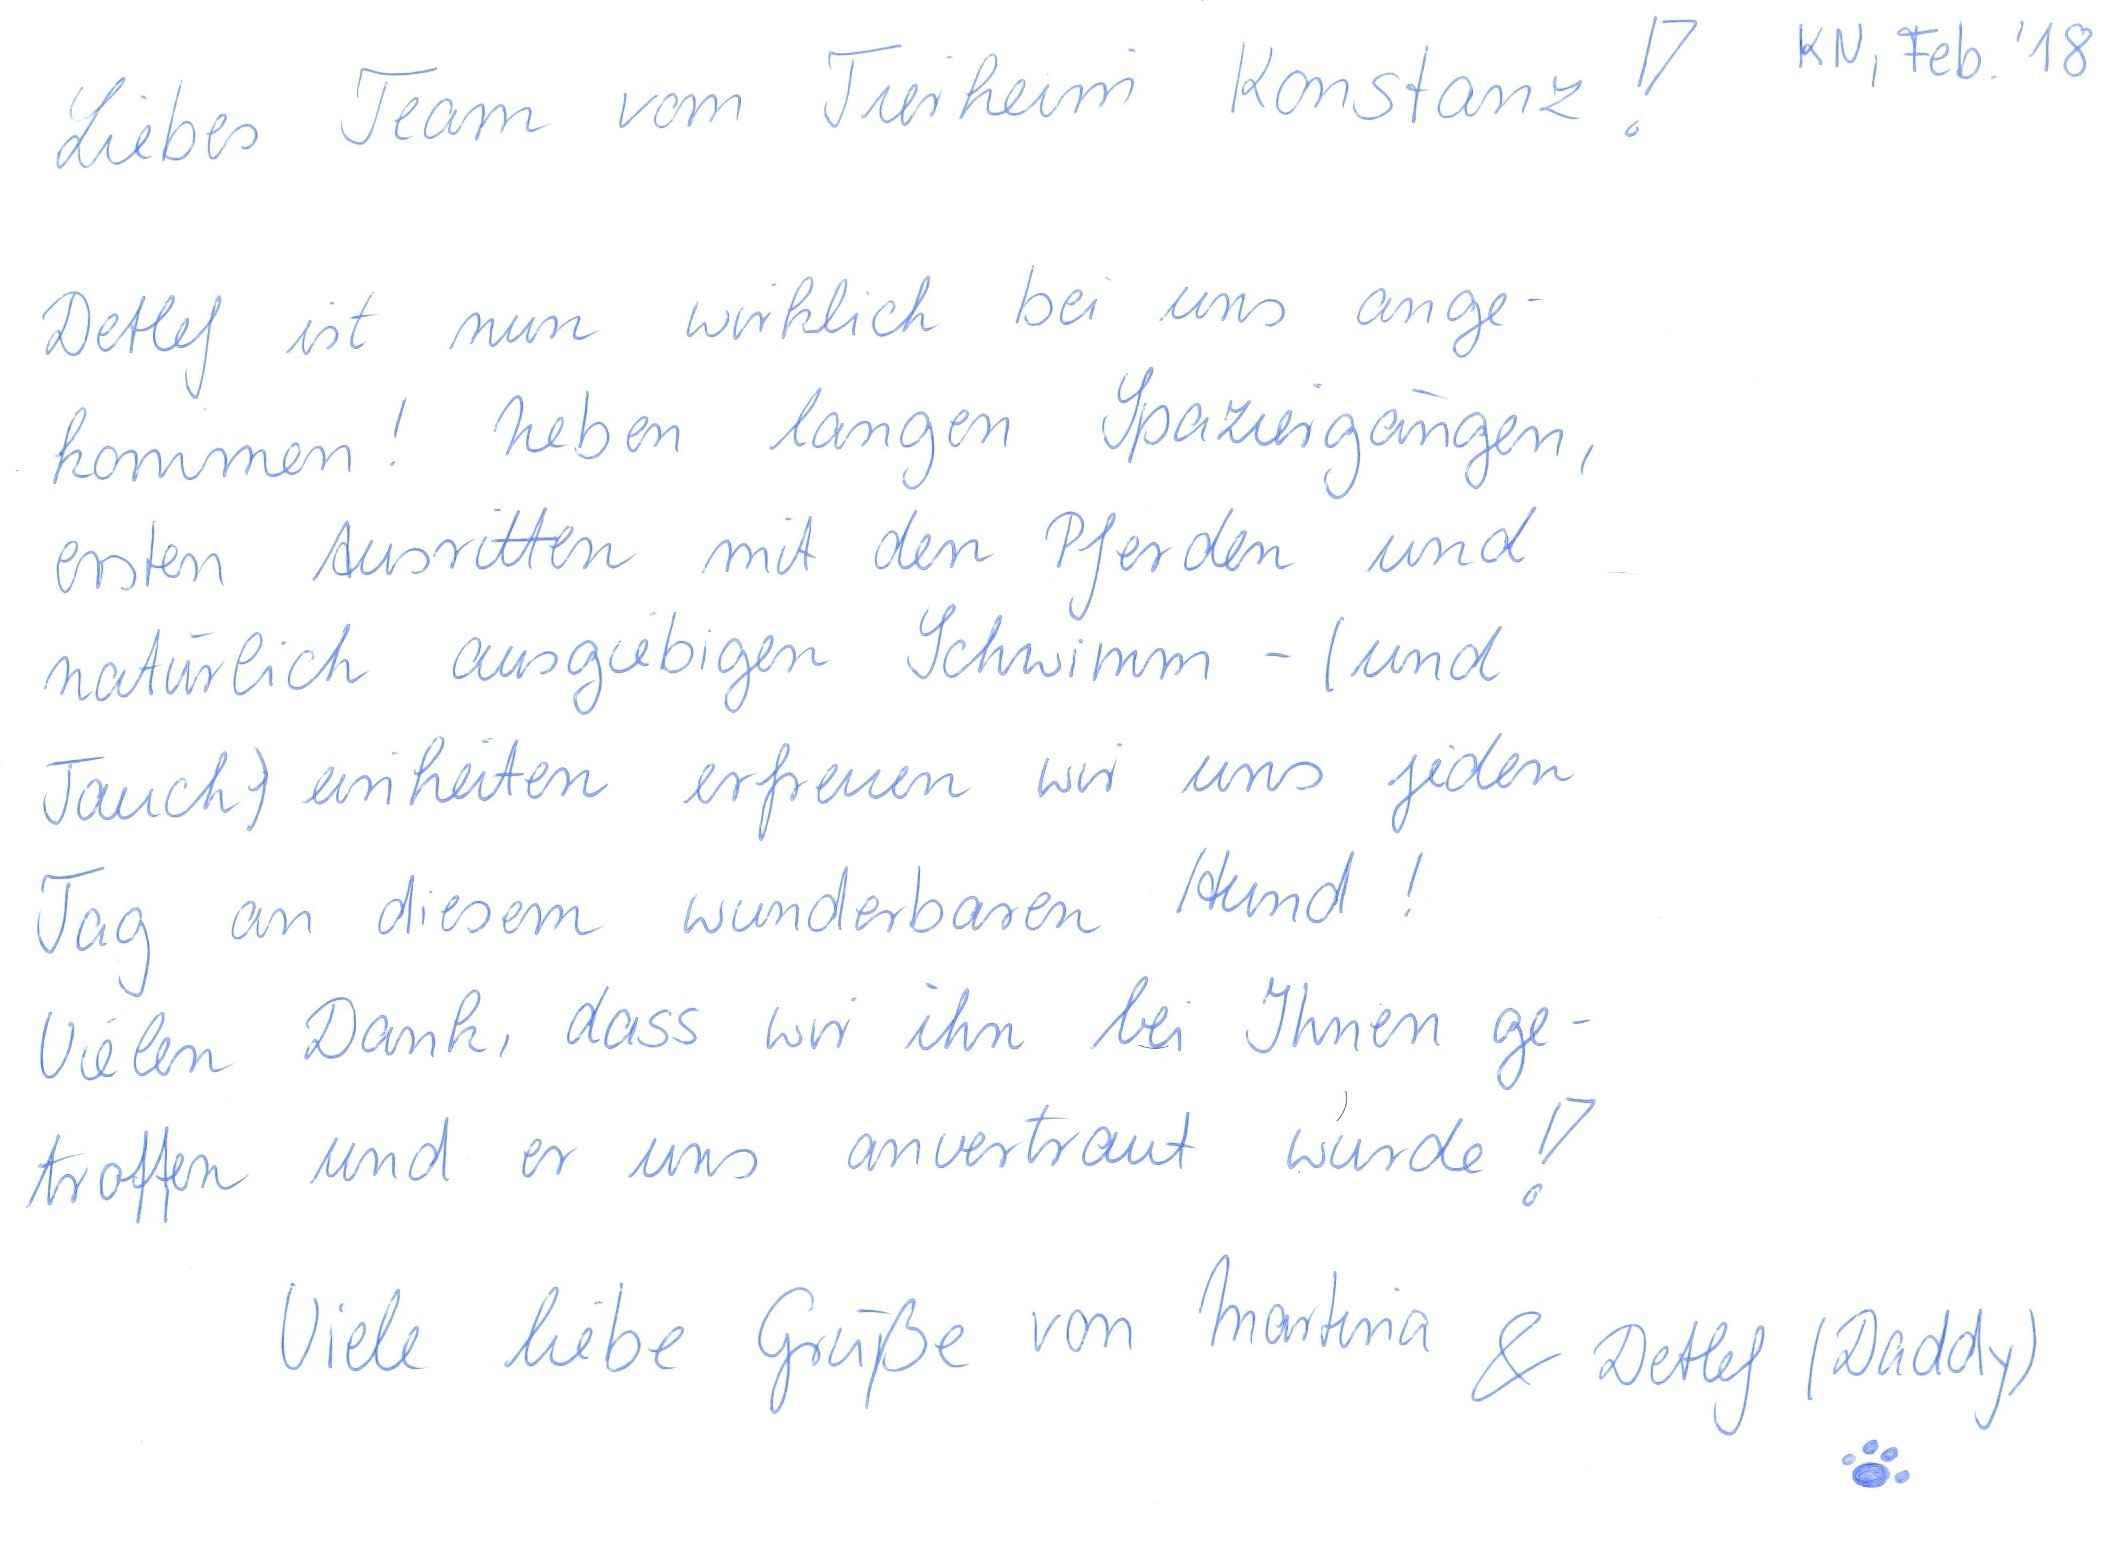 KN, Feb. '18
Liebes Team vom Tierheim Konstanz!
Detlef ist nun wirklich bei uns ange-
kommen! Neben langen Spaziergängen,
ersten Ausritten mit den Pferden und
natürlich ausgiebigen Schwimm-(und
Tauch) einheiten erfreuen wir uns jeden
Tag an diesem wunderbaren Hund!
Vielen Dank, dass wir ihn bei Ihnen ge-
troffen und er uns anvertraut wurde!
Viele liebe Grüße von Martina & Detlef (Daddy)